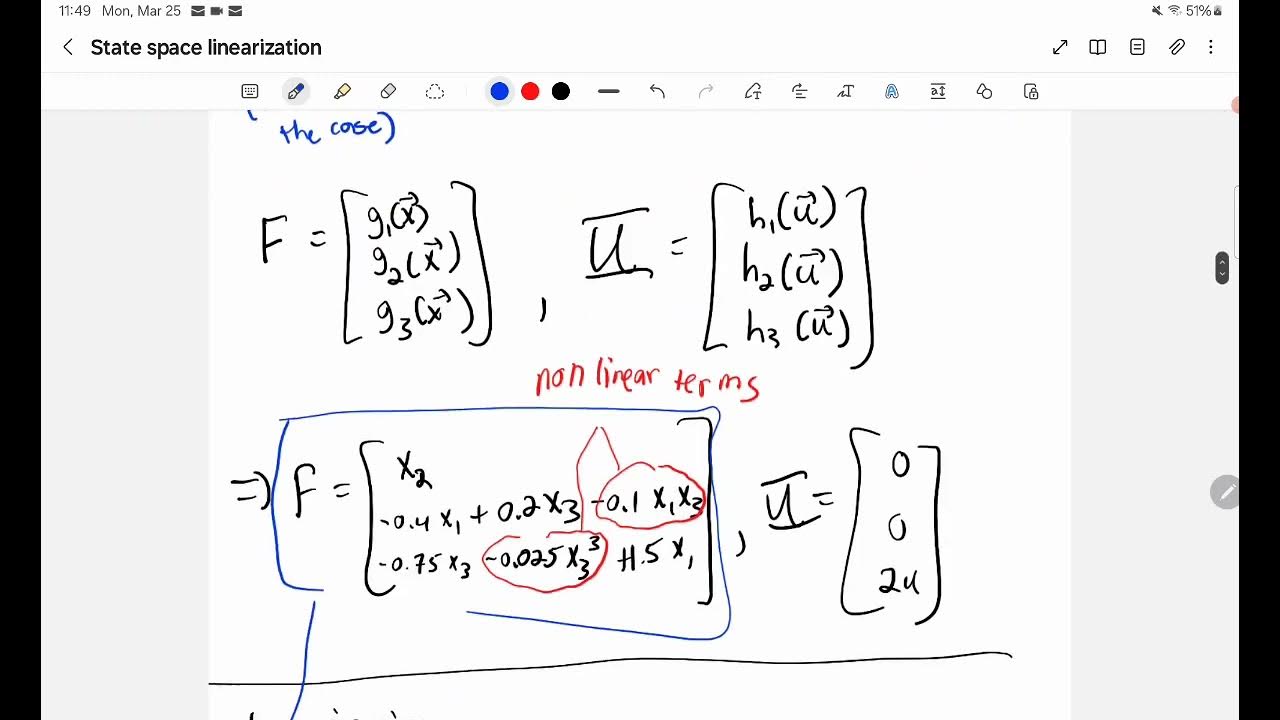 11:49 Mon, Mar 25 51%
State space linearization
the case)
F = [ g₁(x⃗) g₂(x⃗) g₃(x⃗) ] , U = [ h₁(u⃗) h₂(u⃗) h₃(u⃗) ]
non linear terms
=> F = [ x₂
-0.4 x₁ + 0.2 x₃ -0.1 x₁x₂
-0.75 x₃ -0.025 x₃³ +1.5 x₁ ] , U = [ 0 0 2u ]